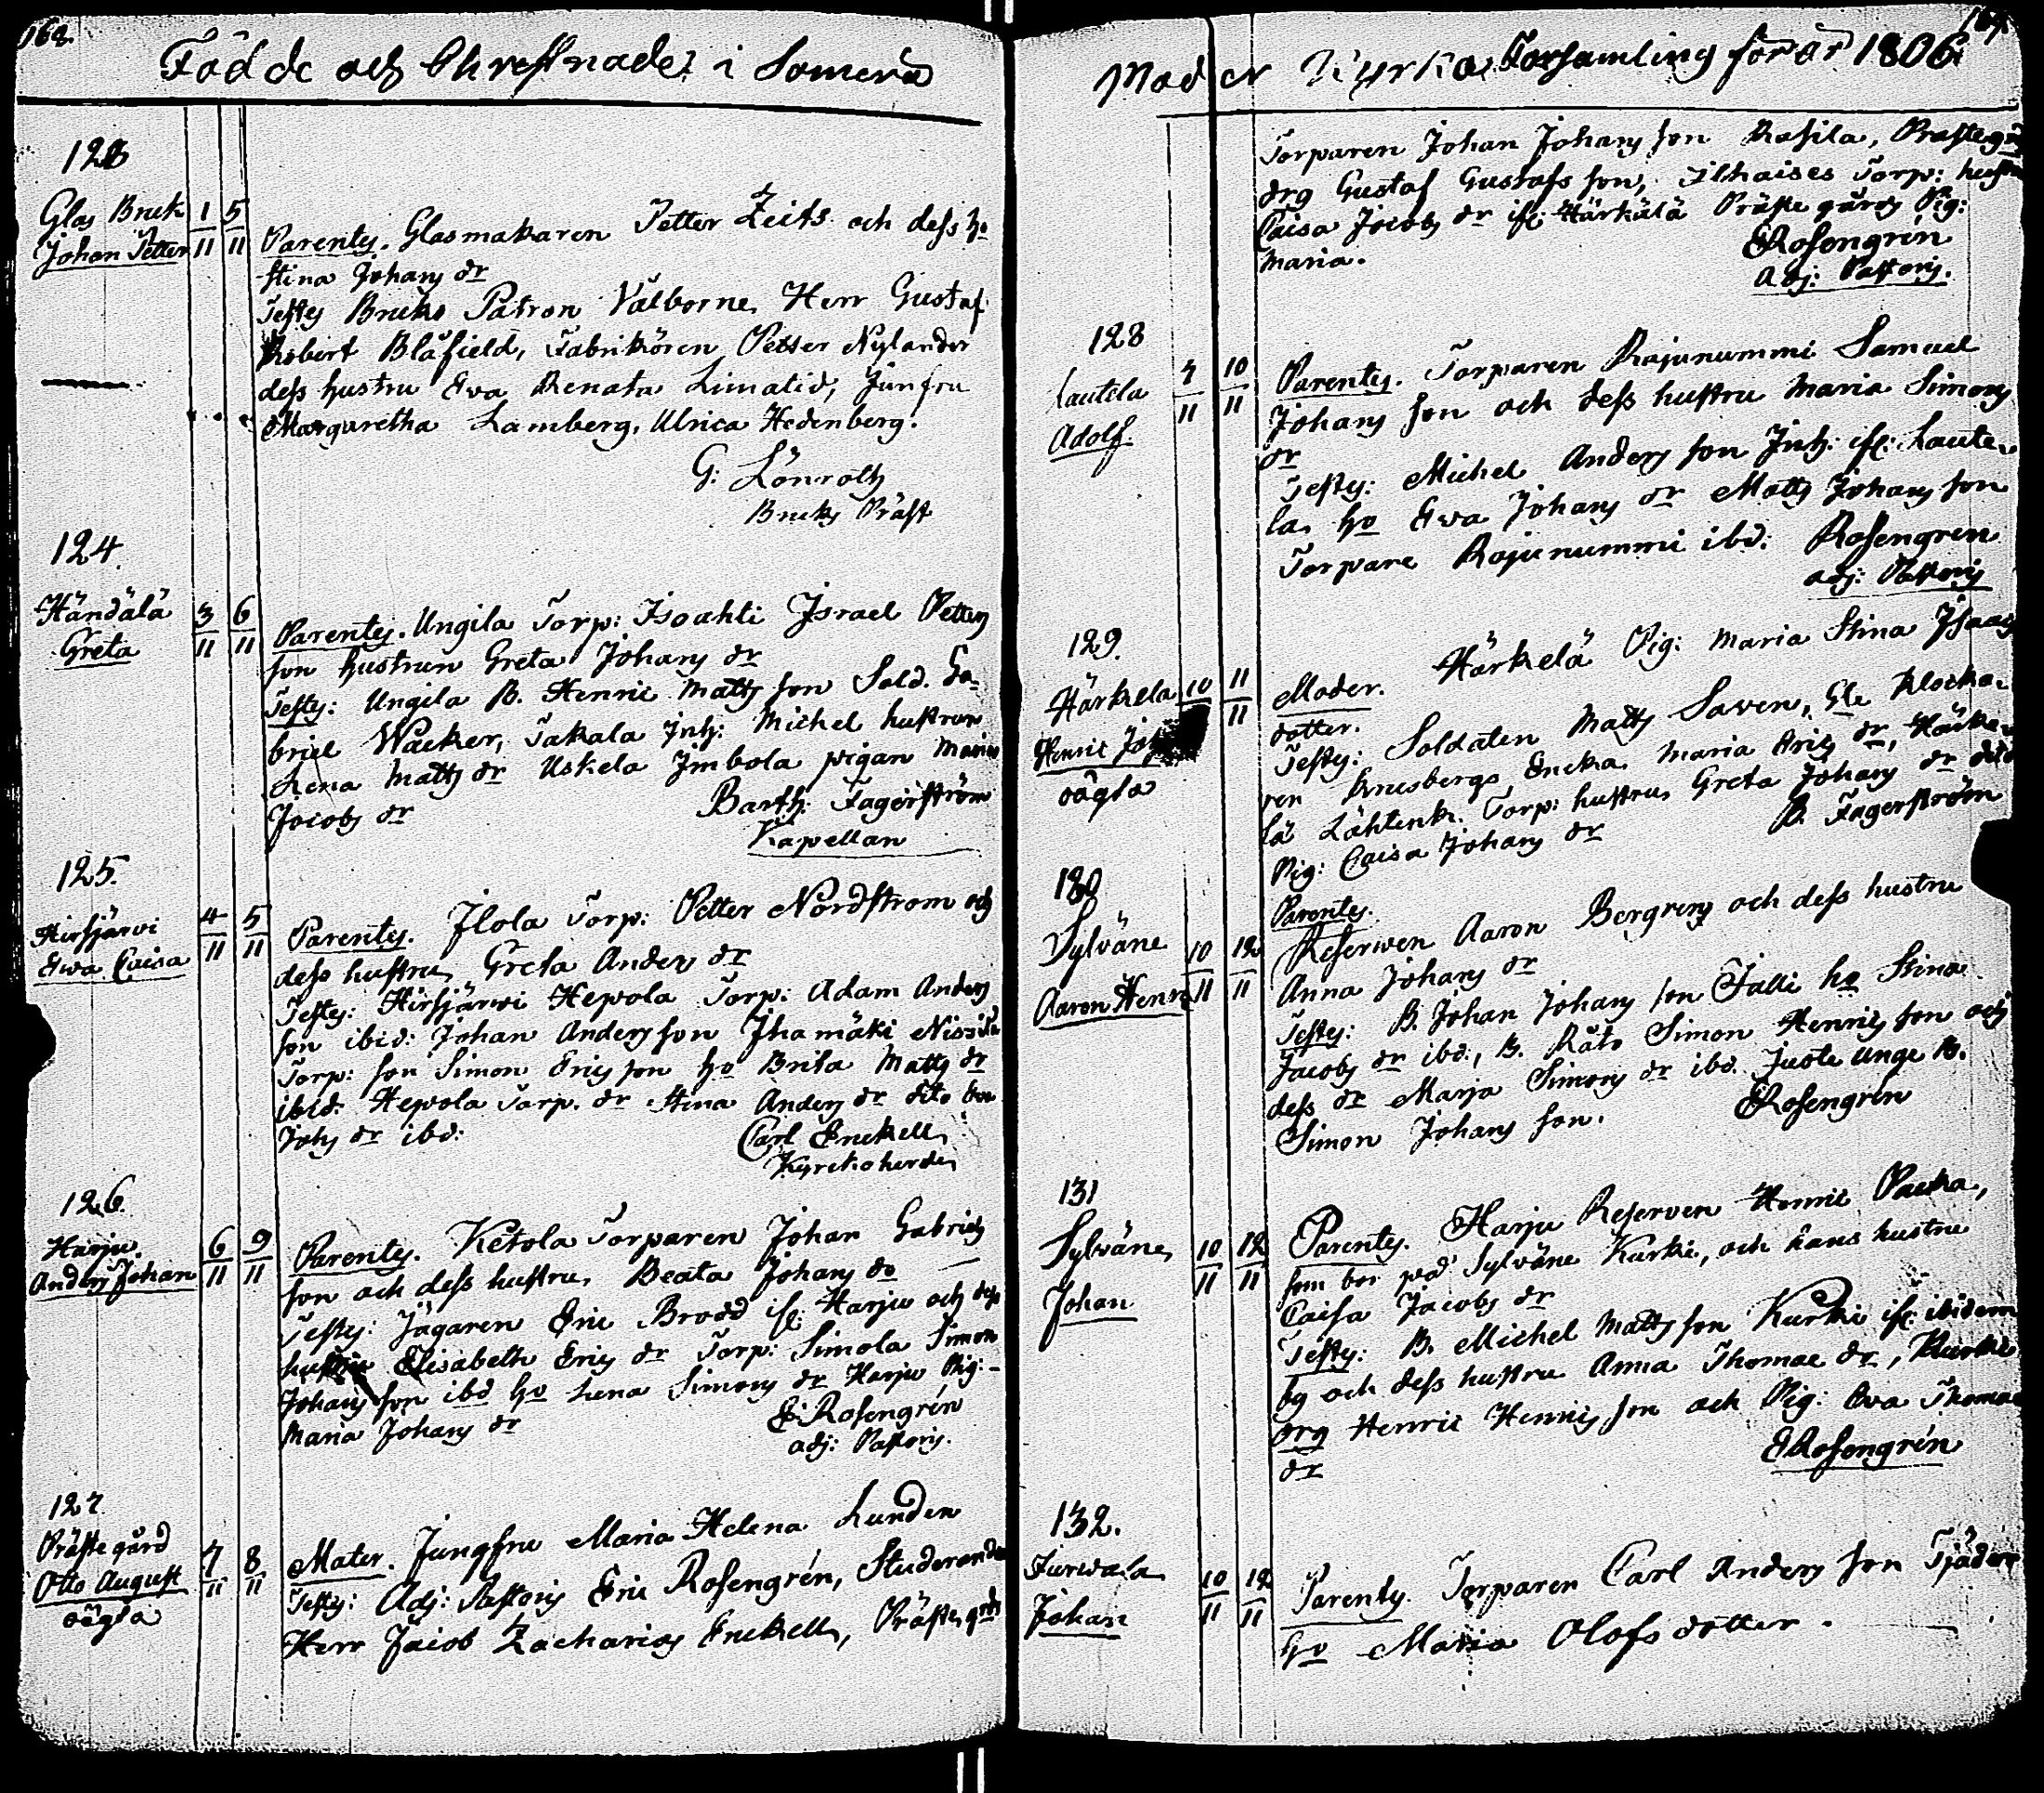 168.
Född de och Christnade i Somero
123
Glas Bruk
Johan Petter
1/11 5/11
Parentes. Glasmakaren Petter Zeits och dess ho
Stina Johans dr
Testes Bruks Patron Välborne Herr Gustaf
Robert Blåfield, Fabrikören Petter Nylander
dess hustru Ewa Renata Limatid, Junfru
Margaretha Lamberg, Ulrica Hedenberg.
G: Lönroth
Bruks Präst
124.
Händälä
Greta
3/11 6/11
Parentes. Ungila Torp: Isoahti Israel Petters
son hustrun Greta Johans dr
Testes: Ungila B. Henric Matts son Sold. Ga-
briel Wacker, Takala Inh: Michel hustrun
Lena Matts dr Uskela Jmbola pigan Maria
Jacobs dr
Barth: Fagerström
Kapellan
125.
Hirsjärvi
Ewa Caisa
4/11 5/11
Parentes. Jlola Torp: Petter Nordstrom och
dess hustru Greta Anders dr
Testes: Hirsjärwi Hepola Torp: Adam Anders
son ibid: Johan Anders son Jhamäki
Torp: son Simon Erics son ho Brita Matts dr
ibid. Hepola Torp. dr Stina Anders dr dito
Johs dr ibd:
Carl Enckell
Kyrckoherde
126.
Harju.
Anders Johan
6/11 9/11
Parentes. Ketola Torparen Johan Gabriels
son och dess hustru, Beata Johans dr
Testes: Jägaren Eric Brodd if: Harju och dess
hustru Elisabeth Erics dr Torp: Simola Simon
Johans son ibd ho Lena Simons dr Harju Pig:
Maria Johans dr
E: Rosengrén
adj: Pastoris.
127
Prästegård
Otto August
oägta
7/11 8/11
Mater. Jungfru Maria Helena Lunden
Testes: Adj: Pastoris Eric Rosengrén, Studerande
Herr Jacob Zacharias Enckell, Präste grds
Moder Kyrko Forsamling för år 1806
Torparen Johan Johans son Rasila, Prästegds
drg Gustaf Gustafs son, Torp: hustru
Caisa Jacobs dr if: Härkälä Präste gårds Pig:
Maria.
ERosengrén
Adj: Pastoris.
128
Lautela
Adolf.
7/11 10/11
Parentes. Torparen Rajunummi Samuel
Johans son och dess hustru Maria Simons
dr
Testes: Michel Anders son Inh: if: Laute-
la, ho Ewa Johans dr Matts Johans son
Torpare Rajunummi ibd: Rosengren
adj: Pastoris
129.
Härkela
Henric
oägta
10 11/11
Moder. Härkelä Pig: Maria Stina Isaacs
dotter.
Testes: Soldaten Matts Saven, Gle Klocka-
ren Enka Maria Erics dr, Härke-
lä Lähtenk. Torp: hustru Greta Johans dr dito
Pig: Caisa Johans dr
B. Fagerström
130
Sylväne
Aaron Henric
10/11 12/11
Parentes.
Reserwen Aaron Bergren och dess hustru
Anna Johans dr
Testes: B. Johan Johans son Talli ho Stina
Jacobs dr ibd:, B. Räto Simon Henrics son och
dess dr Marja Simons dr ibd. Juste Unge B.
Simon Johans son.
ERosengrén
131
Sylväne
Johan
10/11 12/11
Parentes. Harju Reserven Henric Pauka,
som bor på Sylväne Kurki, och hans hustru
Caisa Jacobs dr
Testes: B. Michel Matts son Kurki if: ibidem
by och dess hustru Anna Thomae dr, Kurki
drg Henric Henrics son och Pig: Ewa Thomae
dr
ERosengrén
132.
Johan
10/11 12/11
Parentes. Torparen Carl Anders son Tjäder
ho Maria Olofs dotter.